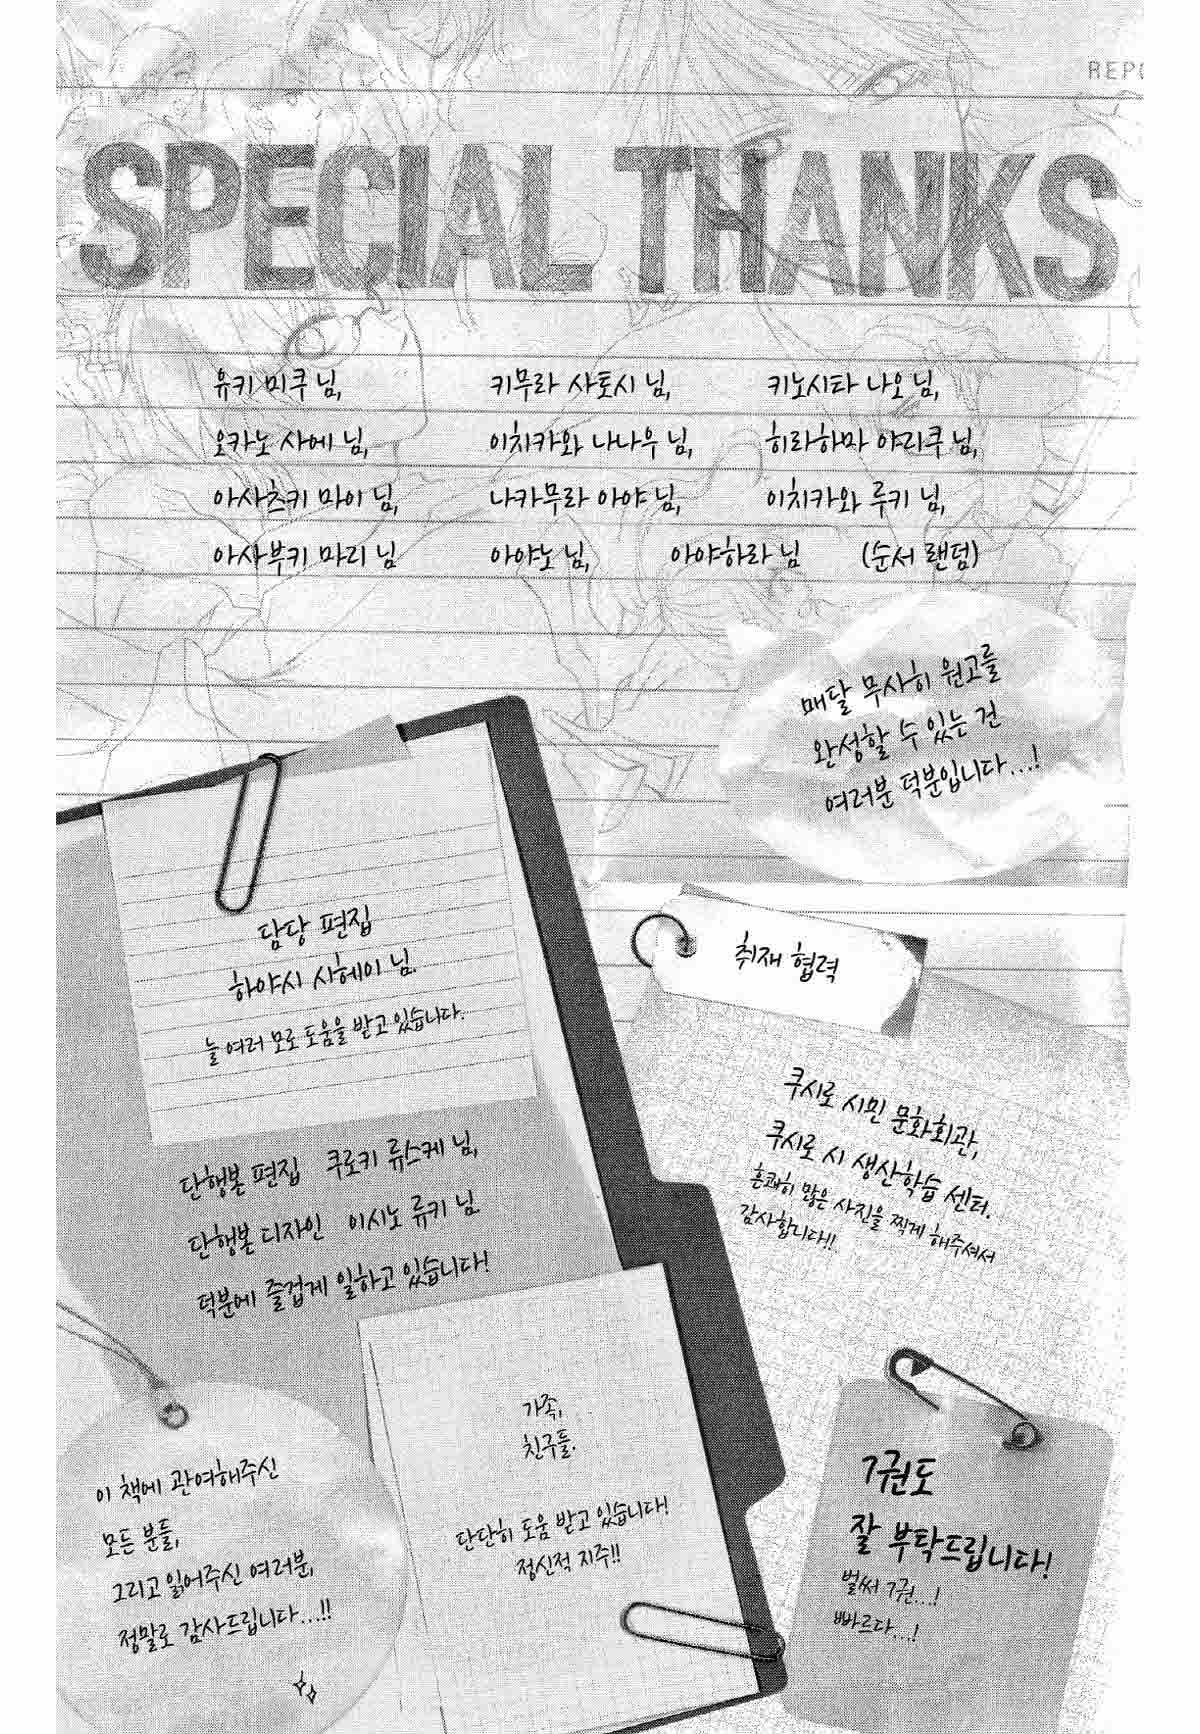 REPO
SPECIAL THANKS
유키 미쿠 님, 키무라 사토시 님, 키노시타 나오 님,
오카노 사에 님, 이치카와 나나우 님, 히라하마 야리쿠 님,
아사츠키 마이 님, 나카무라 아야 님, 이치카와 루키 님,
아사부키 마리 님 아야노 님, 아야하라 님 (순서 랜덤)
매달 무사히 원고를
완성할 수 있는 건
여러분 덕분입니다...!
담당 편집
하야시 사헤이 님.
늘 여러 모로 도움을 받고 있습니다.
단행본 편집 쿠로키 류스케 님,
단행본 디자인 이시노 류키 님
덕분에 즐겁게 일하고 있습니다!
취재 협력
쿠시로 시민 문화회관,
쿠시로 시 생산학습 센터.
흔쾌히 많은 사진을 찍게 해주셔서
감사합니다!!
가족,
친구들.
단단히 도움 받고 있습니다!
정신적 지주!!
이 책에 관여해주신
모든 분들,
그리고 읽어주신 여러분,
정말로 감사드립니다...!!
7권도
잘 부탁드립니다!
벌써 7권...!
빠르다...!